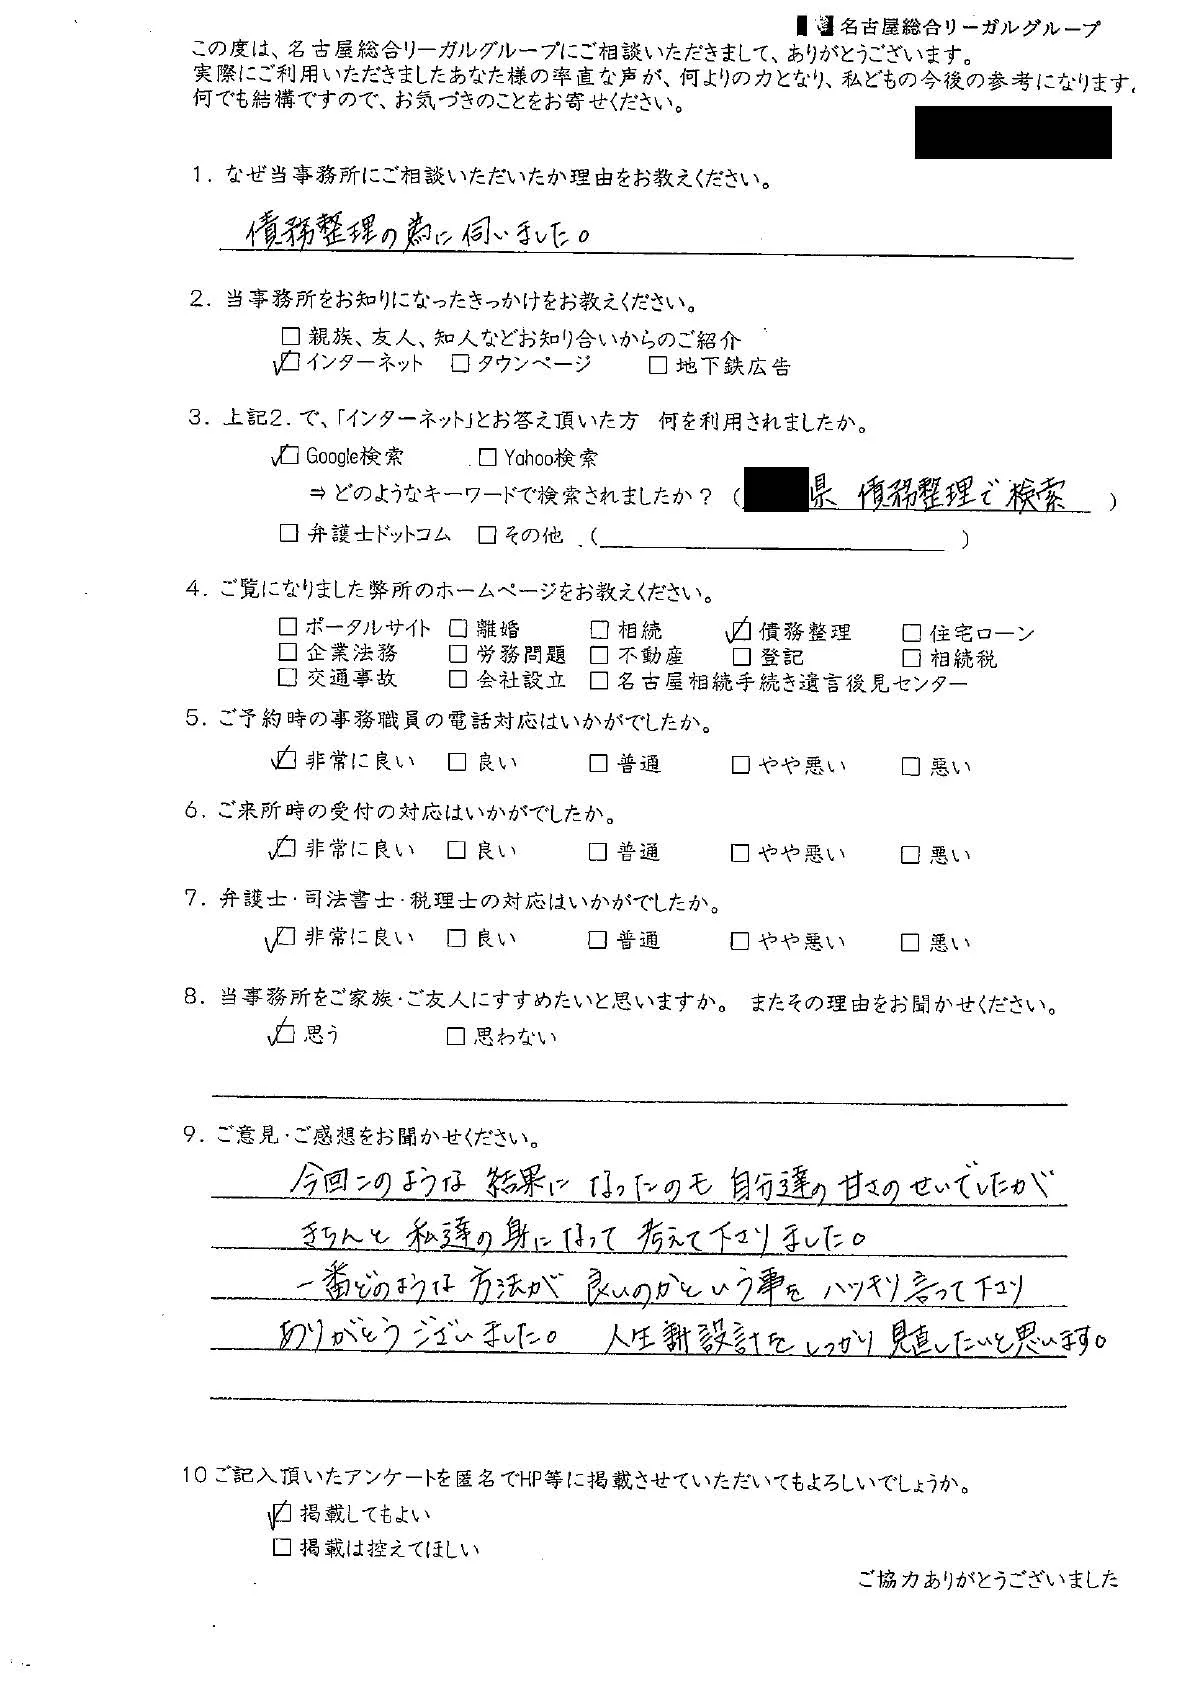 名古屋総合リーガルグループ
この度は、名古屋総合リーガルグループにご相談いただきまして、ありがとうございます。
実際にご利用いただきましたあなた様の率直な声が、何よりの力となり、私どもの今後の参考になります。
何でも結構ですので、お気づきのことをお寄せください。
1. なぜ当事務所にご相談いただいたか理由をお教えください。
債務整理の為に伺いました。
2. 当事務所をお知りになったきっかけをお教えください。
□ 親族、友人、知人などお知り合いからのご紹介
☑ インターネット □ タウンページ □ 地下鉄広告
3. 上記2. で、「インターネット」とお答え頂いた方 何を利用されましたか。
☑ Google検索 □ Yahoo検索
⇒ どのようなキーワードで検索されましたか? ( 県 債務整理で検索 )
□ 弁護士ドットコム □ その他 ( )
4. ご覧になりました弊所のホームページをお教えください。
□ ポータルサイト □ 離婚 □ 相続 ☑ 債務整理 □ 住宅ローン
□ 企業法務 □ 労務問題 □ 不動産 □ 登記 □ 相続税
□ 交通事故 □ 会社設立 □ 名古屋相続手続き遺言後見センター
5. ご予約時の事務職員の電話対応はいかがでしたか。
☑ 非常に良い □ 良い □ 普通 □ やや悪い □ 悪い
6. ご来所時の受付の対応はいかがでしたか。
☑ 非常に良い □ 良い □ 普通 □ やや悪い □ 悪い
7. 弁護士・司法書士・税理士の対応はいかがでしたか。
☑ 非常に良い □ 良い □ 普通 □ やや悪い □ 悪い
8. 当事務所をご家族・ご友人にすすめたいと思いますか。 またその理由をお聞かせください。
☑ 思う □ 思わない
9. ご意見・ご感想をお聞かせください。
今回このような 結果に なったのも 自分達の 甘さのせいでしたが
きちんと 私達の 身に なって 考えて下さりました。
一番どのような 方法が 良いのかという事を ハッキリ 言って下さり
ありがとうございました。 人生設計を しっかり 見直したいと思います。
10 ご記入頂いたアンケートを匿名でHP等に掲載させていただいてもよろしいでしょうか。
☑ 掲載してもよい
□ 掲載は控えてほしい
ご協力ありがとうございました